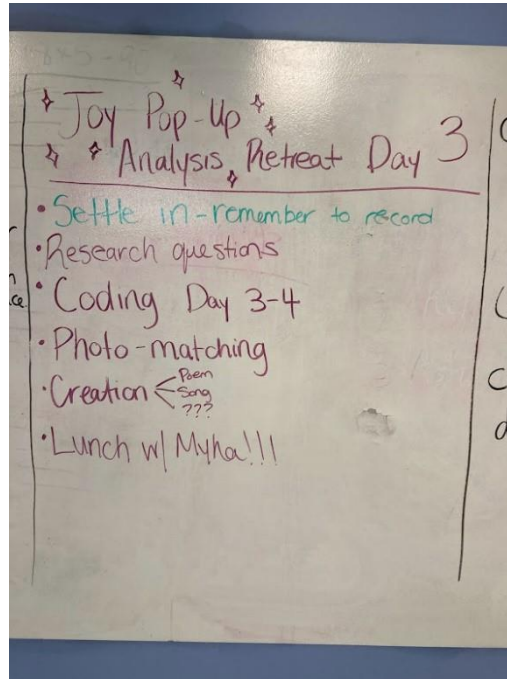 Joy Pop-Up
Analysis Retreat Day 3
• Settle in - remember to record
• Research questions
• Coding Day 3-4
• Photo-matching
• Creation < Poem
Song
???
• Lunch w/ Myha!!!